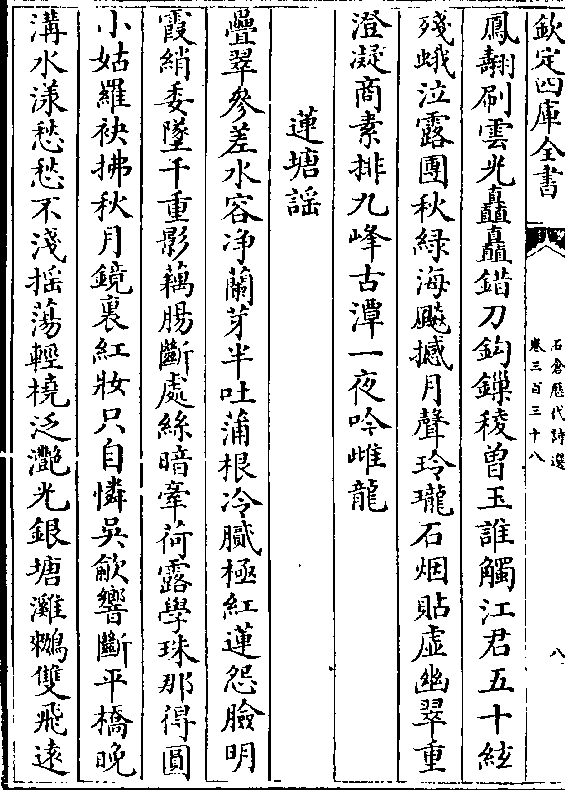 欽定四庫全書
石倉歷代詩選
卷三百三十八
八
鳳翻刷雲光矗矗錯刀鈎鏁稜曽玉誰觸江君五十絃
殘蛾泣露團秋緑海飈撼月聲玲瓏石烟貼虚幽翠重
澄凝商素排九峰古潭一夜吟雌龍
蓮塘謡
疊翠參差水容净蘭芽半吐蒲根冷膩極紅蓮怨臉明
霞綃委墜千重影藕腸斷處絲暗牽荷露學珠那得圓
小姑羅袂拂秋月鏡裏紅妝只自憐吳歈響斷平橋晚
溝水漾愁愁不淺揺蕩輕橈泛灔光銀塘灘鶒雙飛遠